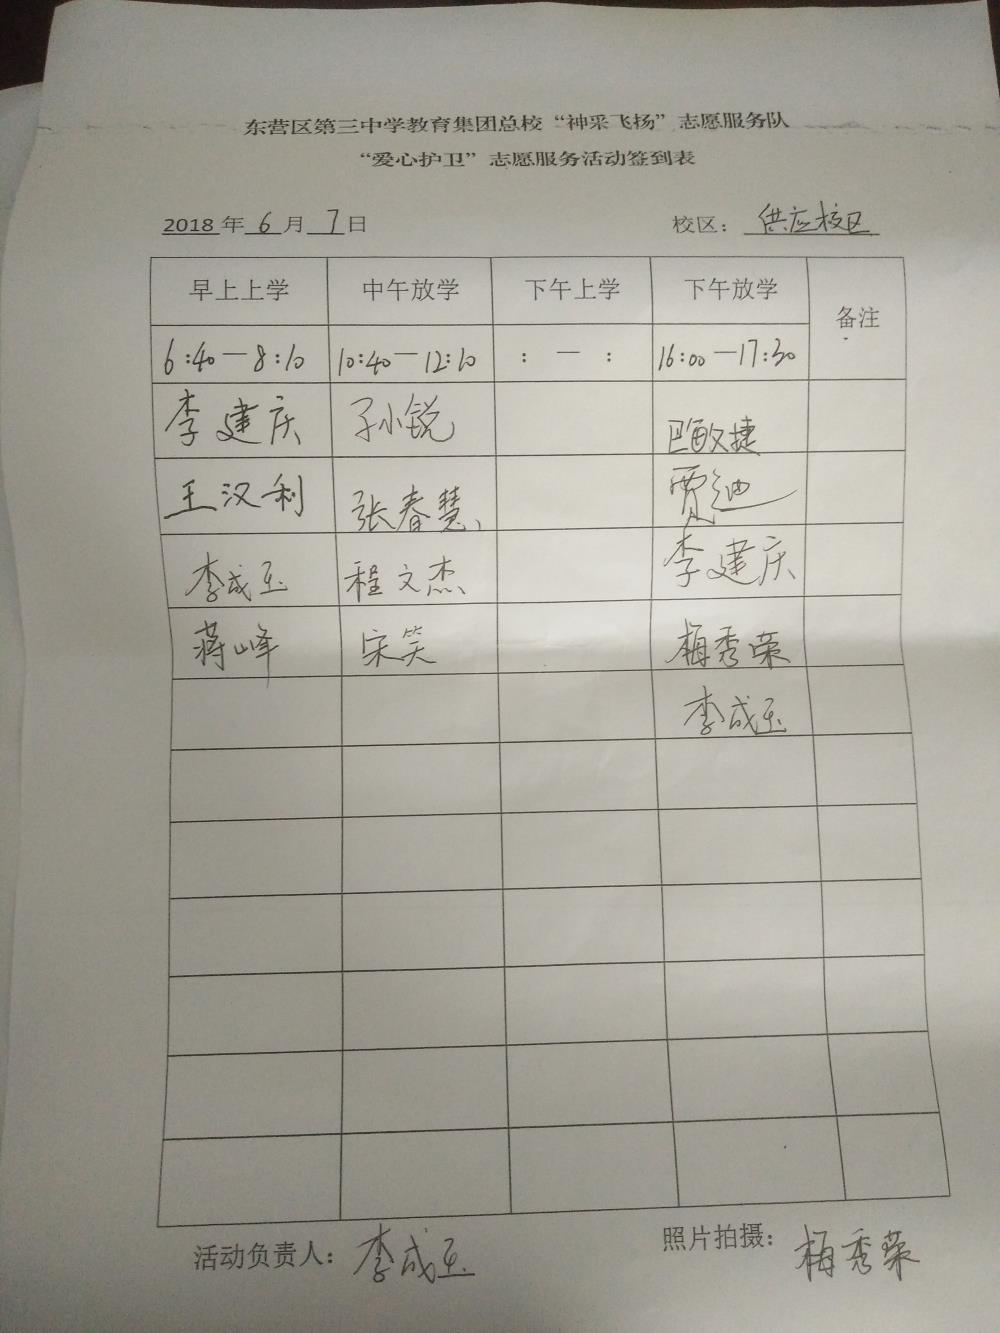 东营区第三中学教育集团总校“神采飞扬”志愿服务队
“爱心护卫”志愿服务活动签到表
2018年 6 月 7 日 校区：供应校区
早上上学 中午放学 下午上学 下午放学 备注
6:40—8:10 10:40—12:10 : — : 16:00—17:30
李建庆 子小锐 巴敏捷
王汉利 张春慧 贾迪
李成玉 程文杰 李建庆
蒋峰 宋笑 梅秀荣
李成玉
活动负责人：李成玉 照片拍摄：梅秀荣